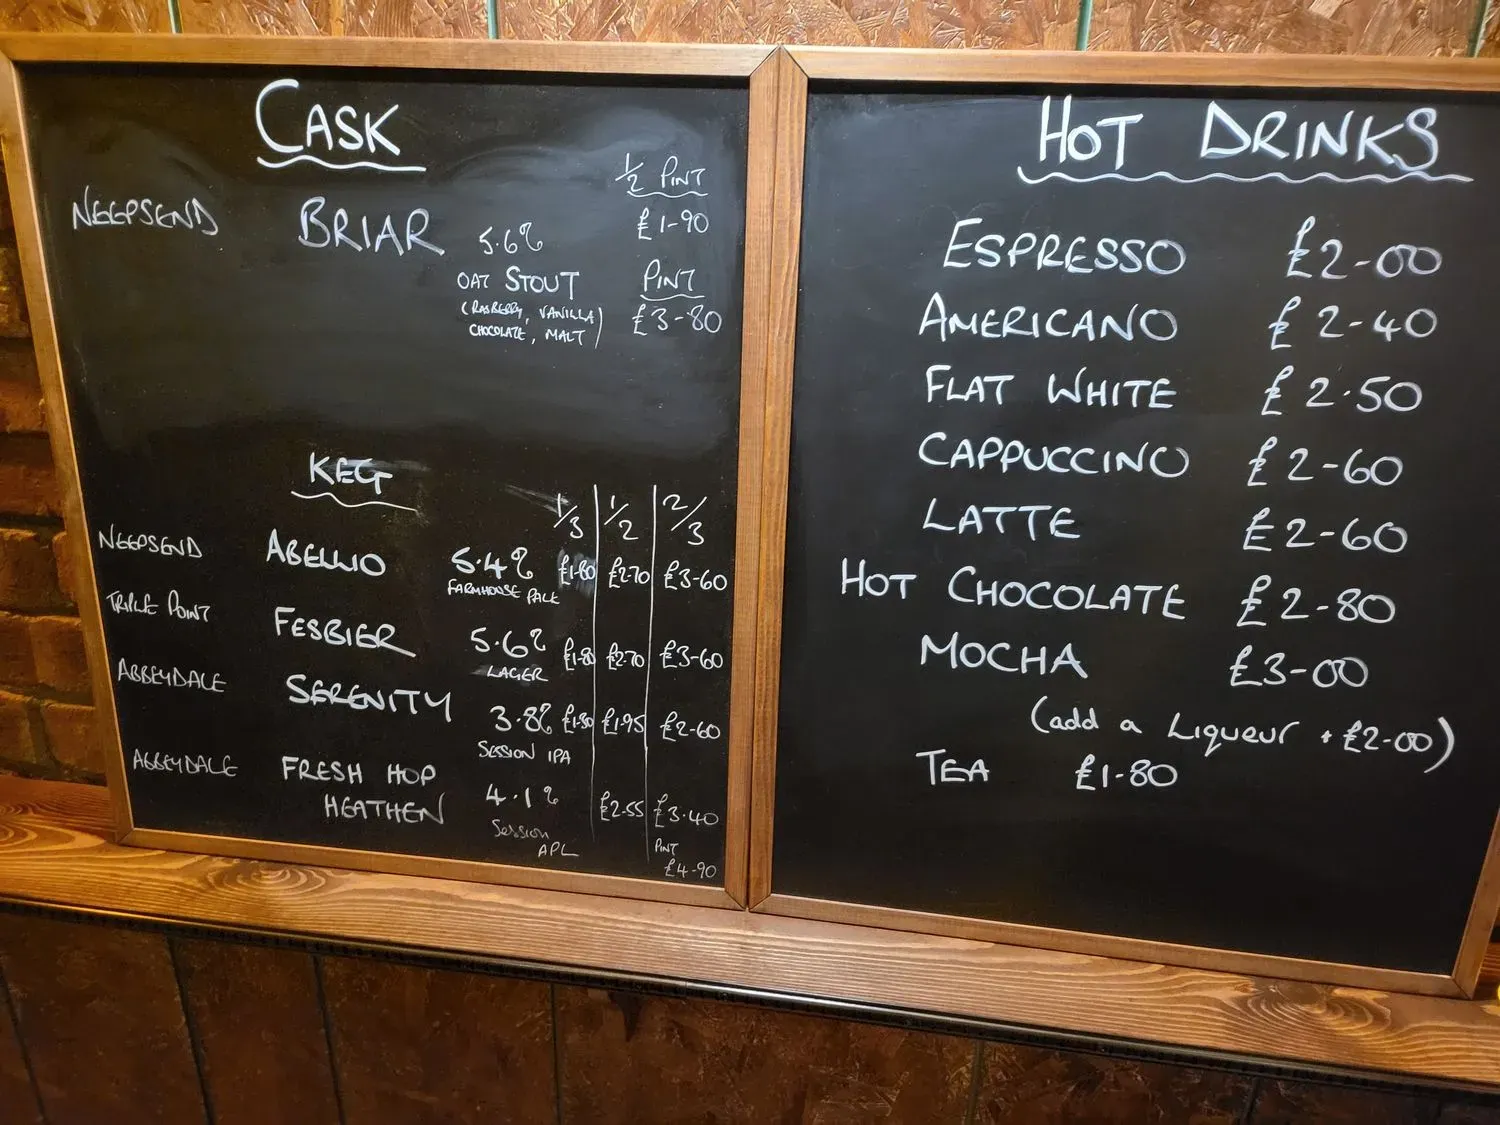 CASK
1/2 PINT
NEEPSEND BRIAR 5.6% £1-90
OAT STOUT PINT
(RASBERRY, VANILLA £3-80
CHOCOLATE, MALT)
KEG
1/3 1/2 2/3
NEEPSEND ABELLIO 5.4% £1-80 £2-70 £3-60
FARMHOUSE PALE
TRIPLE POINT FESBIER 5.6% £1-80 £2-70 £3-60
LAGER
ABBEYDALE SERENITY 3.8% £1-30 £1-95 £2-60
SESSION IPA
ABBEYDALE FRESH HOP 4.1% £2-55 £3.40
HEATHEN
Session PINT
APL £4-90
HOT DRINKS
ESPRESSO £2-00
AMERICANO £2-40
FLAT WHITE £2.50
CAPPUCCINO £2-60
LATTE £2-60
HOT CHOCOLATE £2-80
MOCHA £3-00
(add a Liqueur + £2-00)
TEA £1-80